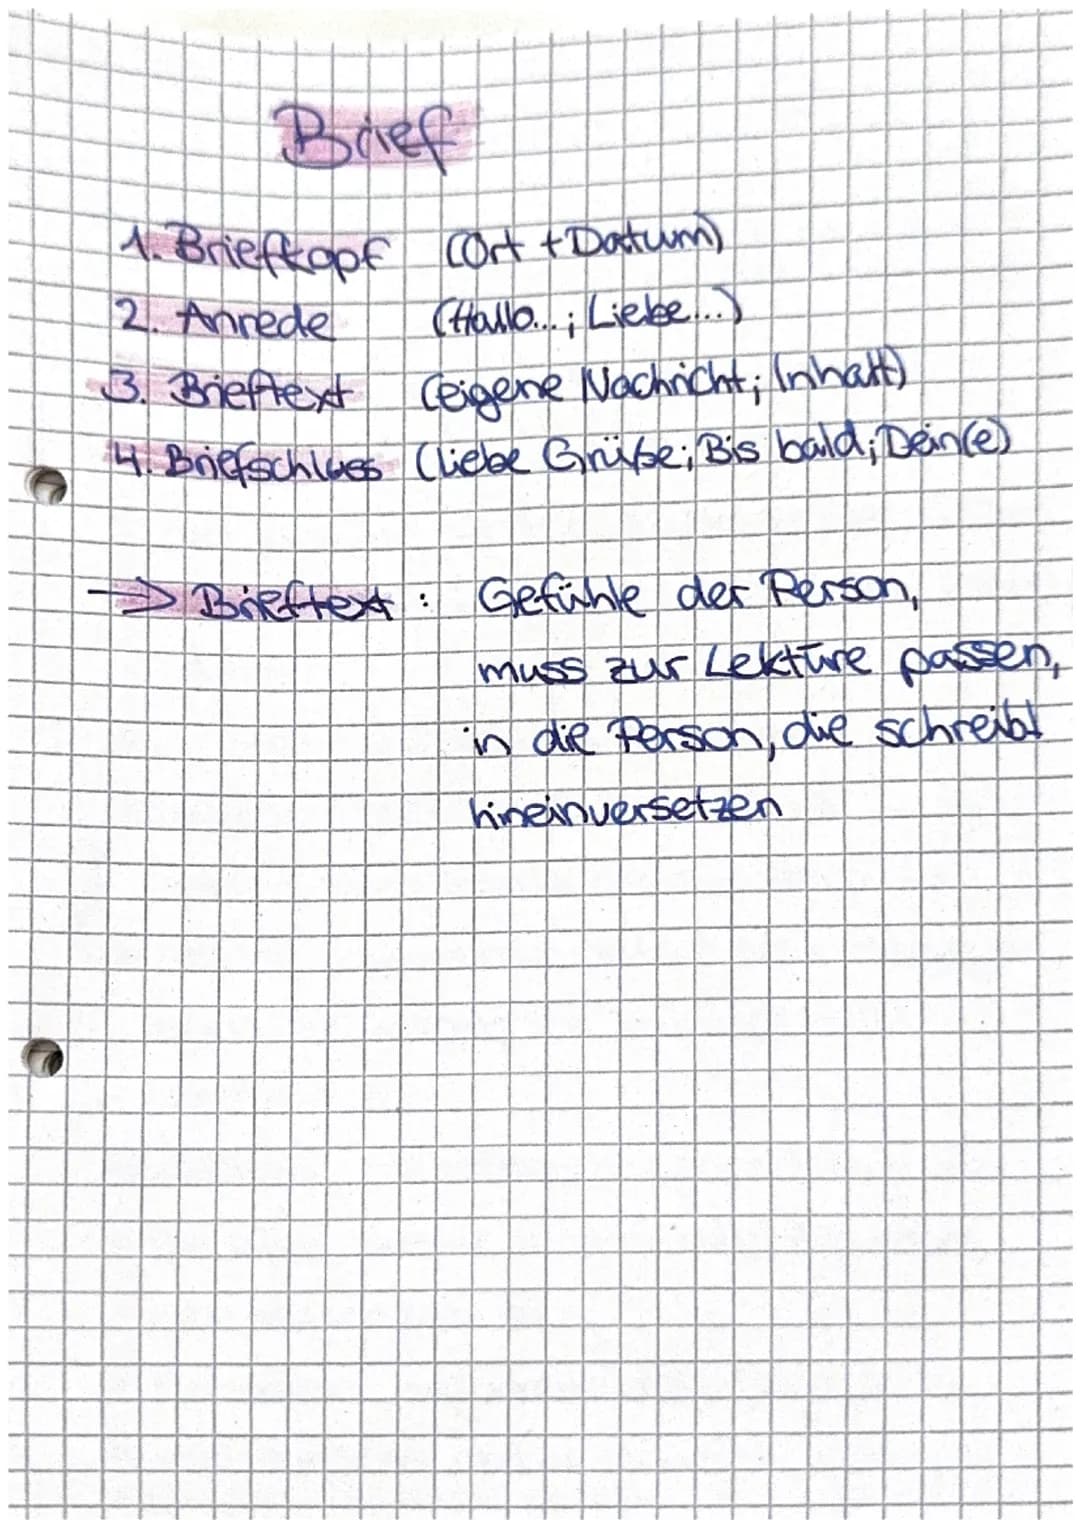 Brief
1. Briefkopf (Ort + Datum)
2. Anrede (Hallo...; Liebe...)
3. Brieftext (eigene Nachricht; Inhalt)
4. Briefschluss (Liebe Grüße; Bis bald; Dein(e))
→ Brieftext: Gefühle der Person,
muss zur Lektüre passen,
in die Person, die schreibt
hineinversetzen